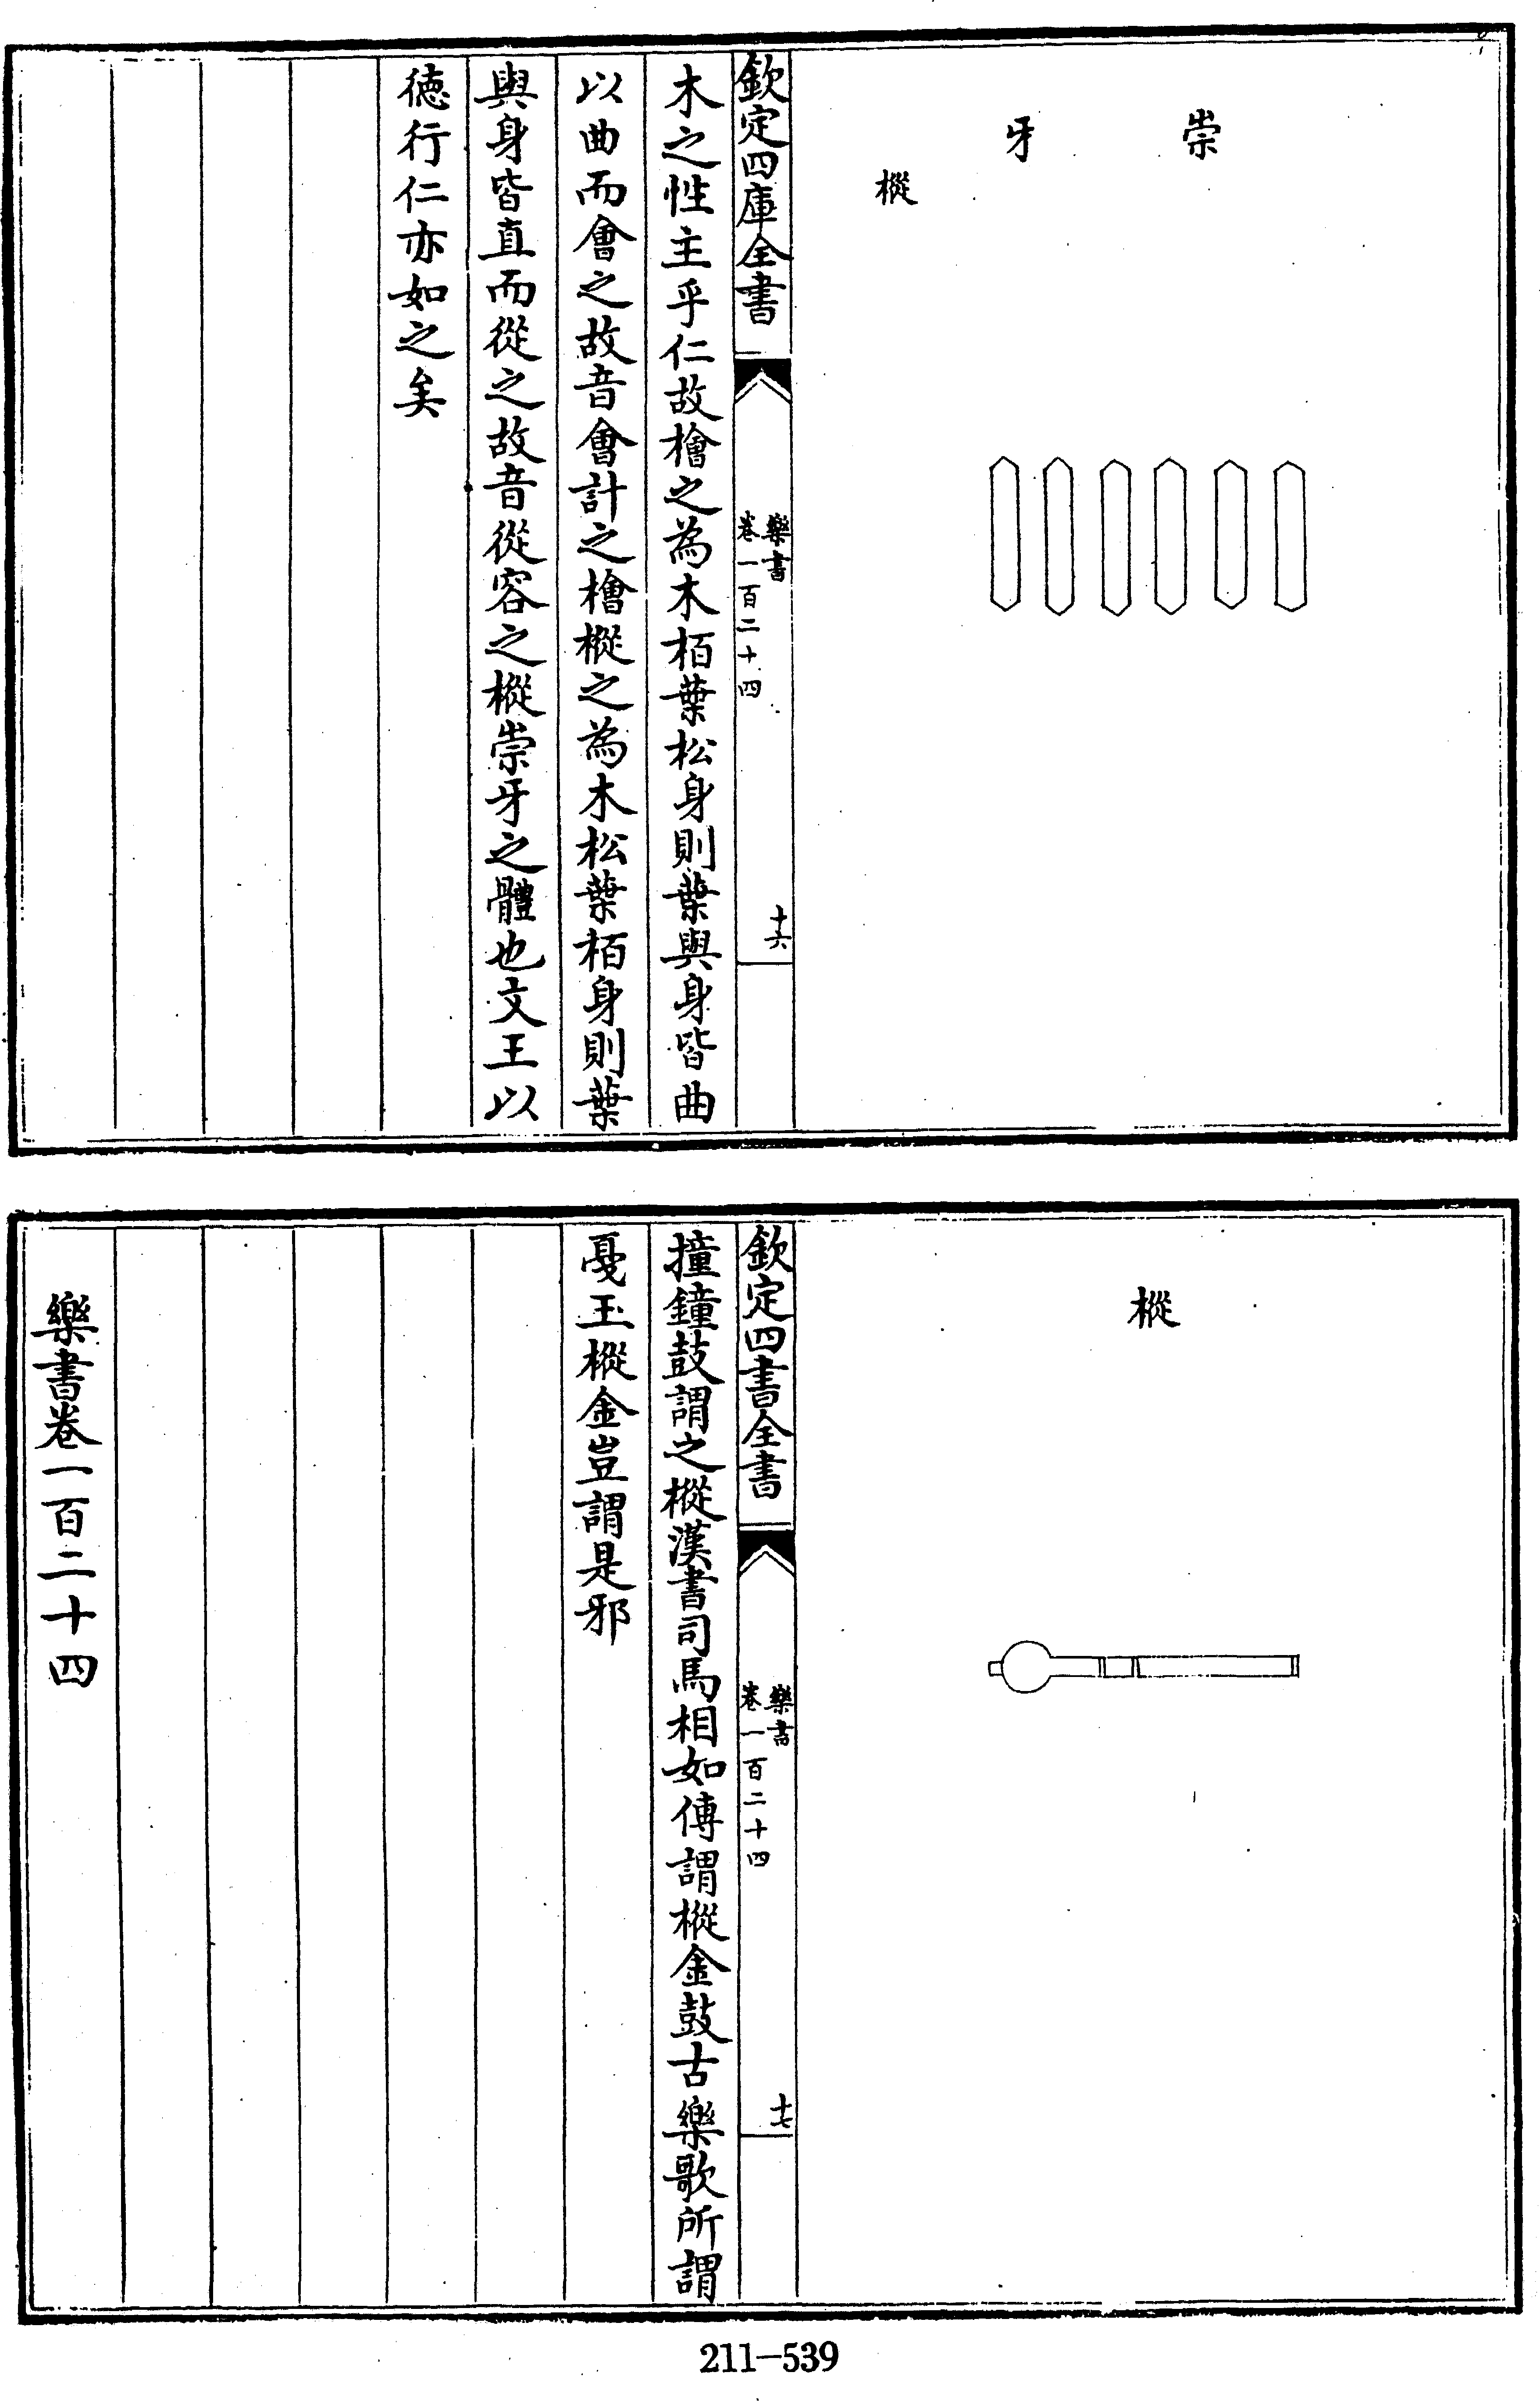 崇牙
樅
欽定四庫全書
樂書
卷一百二十四
十六
木之性主乎仁故檜之為木栢葉松身則葉與身皆曲
以曲而會之故音會計之檜樅之為木松葉栢身則葉
與身皆直而從之故音從容之樅崇牙之體也文王以
徳行仁亦如之矣
樅
欽定四書全書
樂書
卷一百二十四
十七
撞鐘鼓謂之樅漢書司馬相如傳謂樅金鼓古樂歌所謂
戞玉樅金豈謂是邪
樂書卷一百二十四
211-539